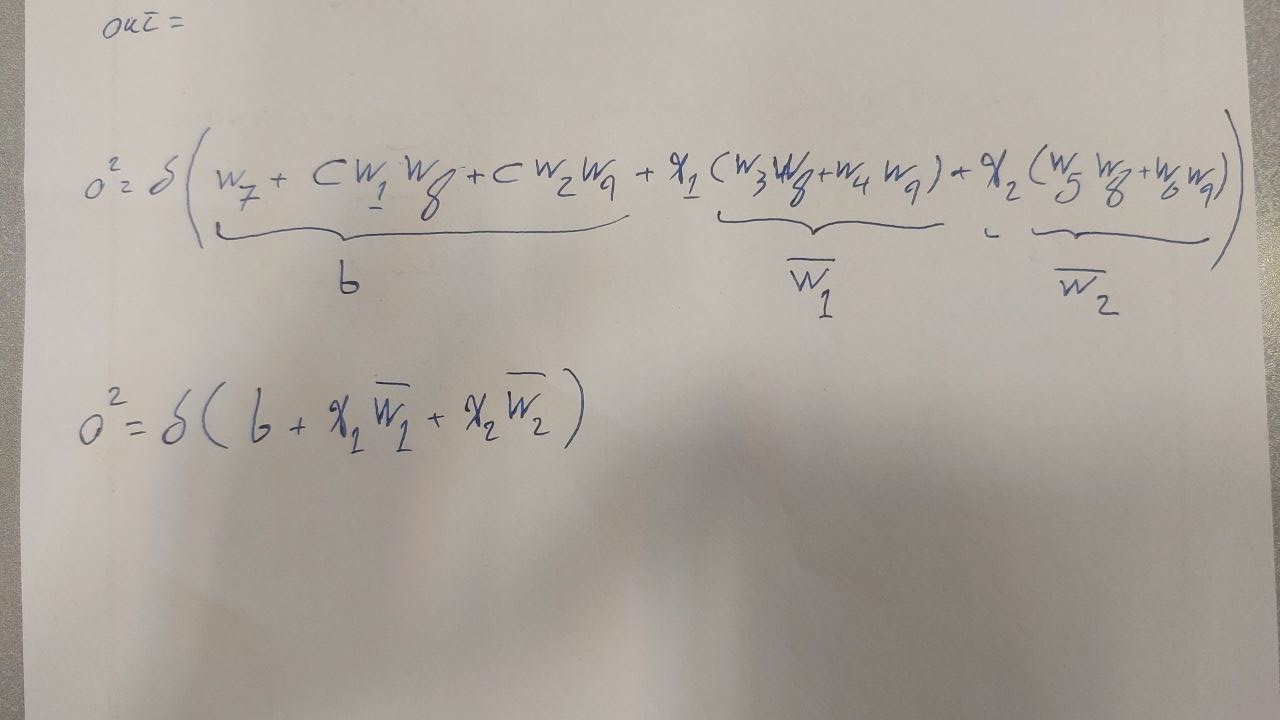 окč =
o² = δ( w₇ + c w₁ w₈ + c w₂ w₉ + x₁ ( w₃ w₈ + w₄ w₉ ) + x₂ ( w₅ w₈ + w₆ w₉ ) )
b w̅₁ w̅₂
o² = δ( b + x₁ w̅₁ + x₂ w̅₂ )